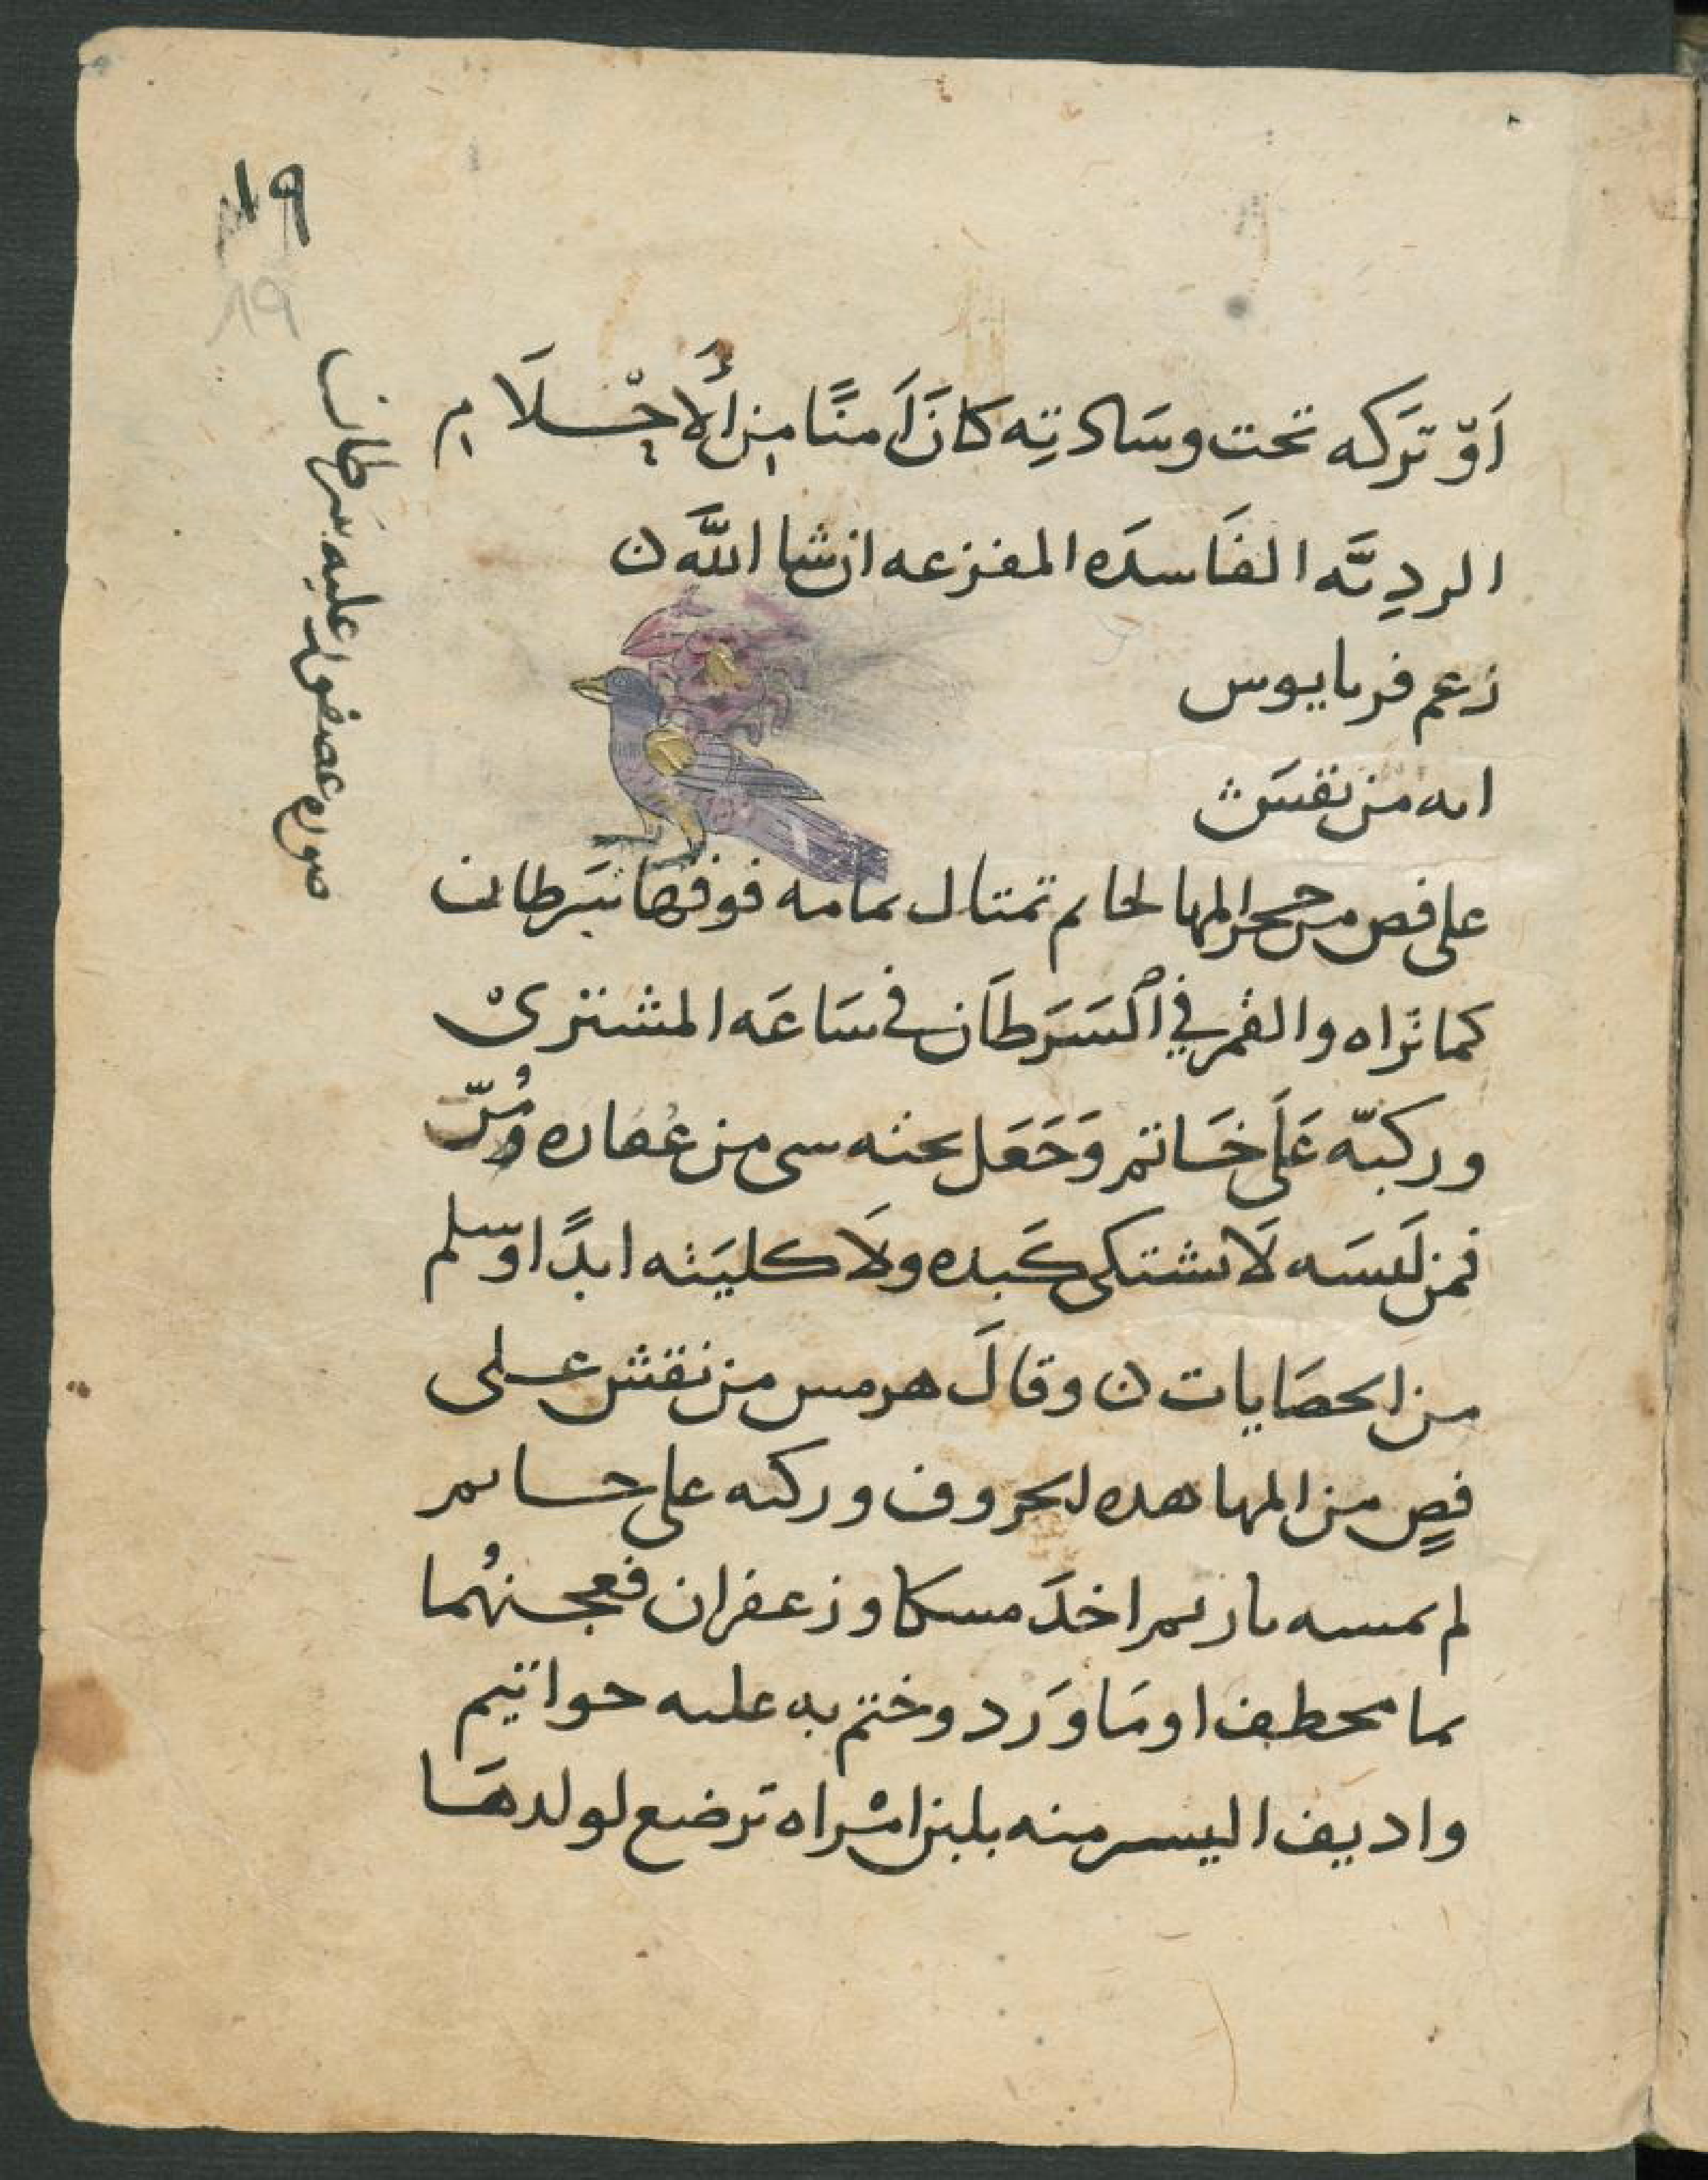 ١٩
١٩
اَوْ تَركه تحت وسَادتِه كانَ اَمنًا مِن اُلاَحْلَامِ
الرديَّه الفَاسدَه المفزعه ان شا اللَّه ن
زعم فرىايوس
انه من نقَش
على فص من حجر المها لخاتم تمتال يمامه فوقها سَرطان
كما تَراه والقمر في اٌلسَرَطَان في سَاعَه المشترىْ
وركبّه عَلَى خَاتم وَجَعَل تحته سى من عُصاره مُرّ
فمن لَبسَه لَا يشتكى كَبده ولَا كليَته ابدًا وسلم
من الحصَايات ن وقالَ هرمس من نقش على
فصٍ من المها هده الحروف وركبه على خاتم
لم يمسه نار ثم اخدَ مسكا وزعفران فعجنهُما
بما مخطف او مَا وَرد وختم به عليه خواتيم
واديف اليسير منه بلبن امْراه ترضع لولدهَا
صوره عصفور عليه سَرطان